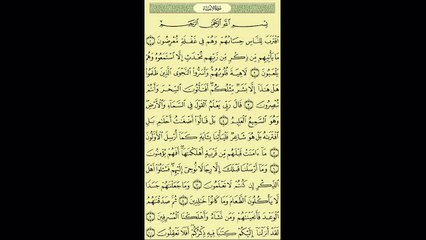 سورة الأنبياء
بسم الله الرحمن الرحيم
اقترب للناس حسابهم وهم في غفلة معرضون ١
ما يأتيهم من ذكر من ربهم محدث إلا استمعوه وهم
يلعبون ٢ لاهية قلوبهم وأسروا النجوى الذين ظلموا
هل هذا إلا بشر مثلكم أفتأتون السحر وأنتم
تبصرون ٣ قال ربي يعلم القول في السماء والأرض
وهو السميع العليم ٤ بل قالوا أضغاث أحلام بل
افتراه بل هو شاعر فليأتنا بآية كما أرسل الأولون
٥ ما آمنت قبلهم من قرية أهلكناها أفهم يؤمنون
٦ وما أرسلنا قبلك إلا رجالا نوحي إليهم فسئلوا أهل
الذكر إن كنتم لا تعلمون ٧ وما جعلناهم جسدا
لا يأكلون الطعام وما كانوا خالدين ٨ ثم صدقناهم
الوعد فأنجيناهم ومن نشاء وأهلكنا المسرفين ٩
لقد أنزلنا إليكم كتابا فيه ذكركم أفلا تعقلون ١٠